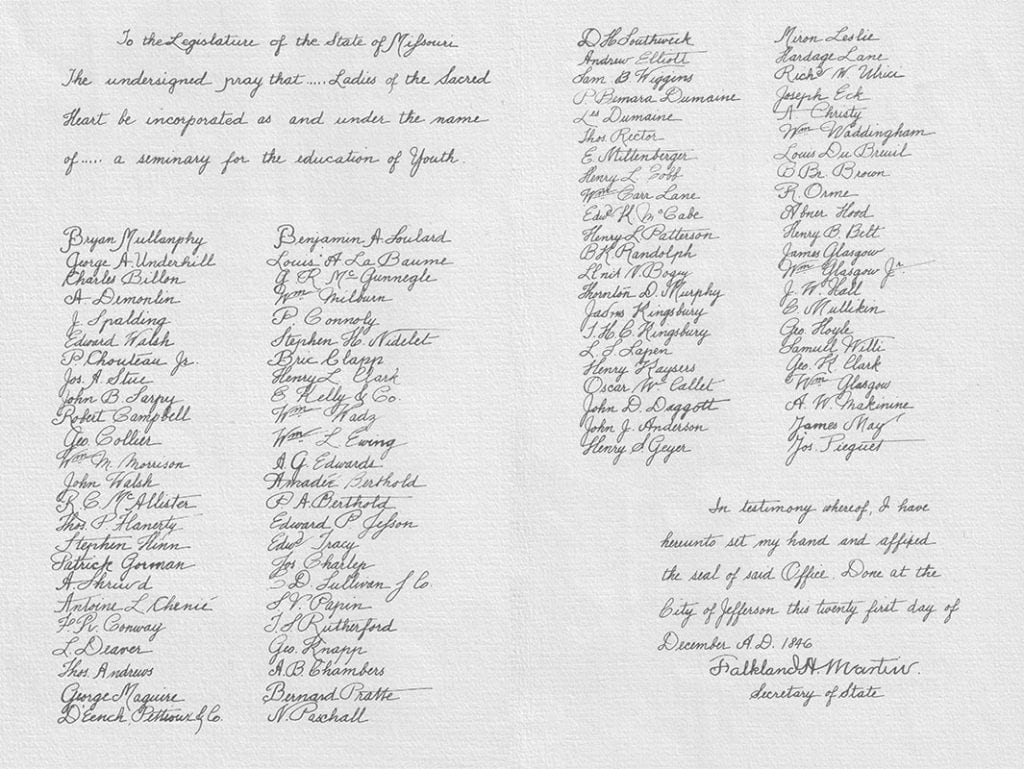 To the Legislature of the State of Missouri
The undersigned pray that ..... Ladies of the Sacred
Heart be incorporated as and under the name
of ..... a seminary for the education of Youth.
Bryan Mullanphy
George A. Underhill
Charles Billon
A Demonlin
J. Spalding
Edward Walsh
P. Chouteau Jr.
Jos. A. Stue
John B. Sarpy
Robert Campbell
Geo. Collier
Wm M. Morrison
John Walsh
R. C. McAllister
Thos. P. Flanerty
Stephen Hinn
Patrick Gorman
A. Shriwd
Antoine L. Chenié
F. R. Conway
L. Deaver
Thos. Andrews
George Maguire
D'Eench, Pettioux & Co.
Benjamin A. Soulard
Louis A La Baume
G R McGunnegle
Wm Milburn
P. Connoly
Stephen H. Nidelet
Bric Clapp
Henry L. Clark
E Kelly & Co.
Wm Wadz
Wm L. Ewing
A. G. Edwards
Amadée Berthold
P A. Berthold
Edward P Jesson
Edwd Tracy
Jos Charlep
D. Sullivan & Co.
S. V. Papin
T. S Rutherford
Geo. Knapp
A. B. Chambers
Bernard Pratte
N. Paschall
D H Southweck
Andrew Elliott
Sam B Wiggins
P. Bemara Dumaine
Les Dumaine
Thos. Rector
E. Miltenberger
Henry L. Goff
Wm Carr Lane
Edwd K. McCabe
Henry L Patterson
B. K. Randolph
V. Bogy
Thornton D. Murphy
Jaoms Kingsbury
T. H. C. Kingsbury
L. S. Lapen
Henry Kaysers
Oscar W. Callet
John D. Daggott
John J. Anderson
Henry S Geyer
Miron Leslie
Hardage Lane
Richd W. Ulrici
Joseph Eck
A Christy
Wm Waddingham
Louis Du Breuil
B Br. Brown
R. Orme
Abner Hood
Henry B. Belt
James Glasgow
Wm Glasgow Jr.
J. W. Hall
C. Mullikin
Geo. Hoyle
Samuel Willi
Geo. K. Clark
Wm Glasgow
A. W. Makinine
James May
Jos. Pieguet
In testimony whereof, I have
hereunto set my hand and affixed
the seal of said Office. Done at the
City of Jefferson this twenty first day of
December A.D. 1846
Falkland H. Martin.
Secretary of State